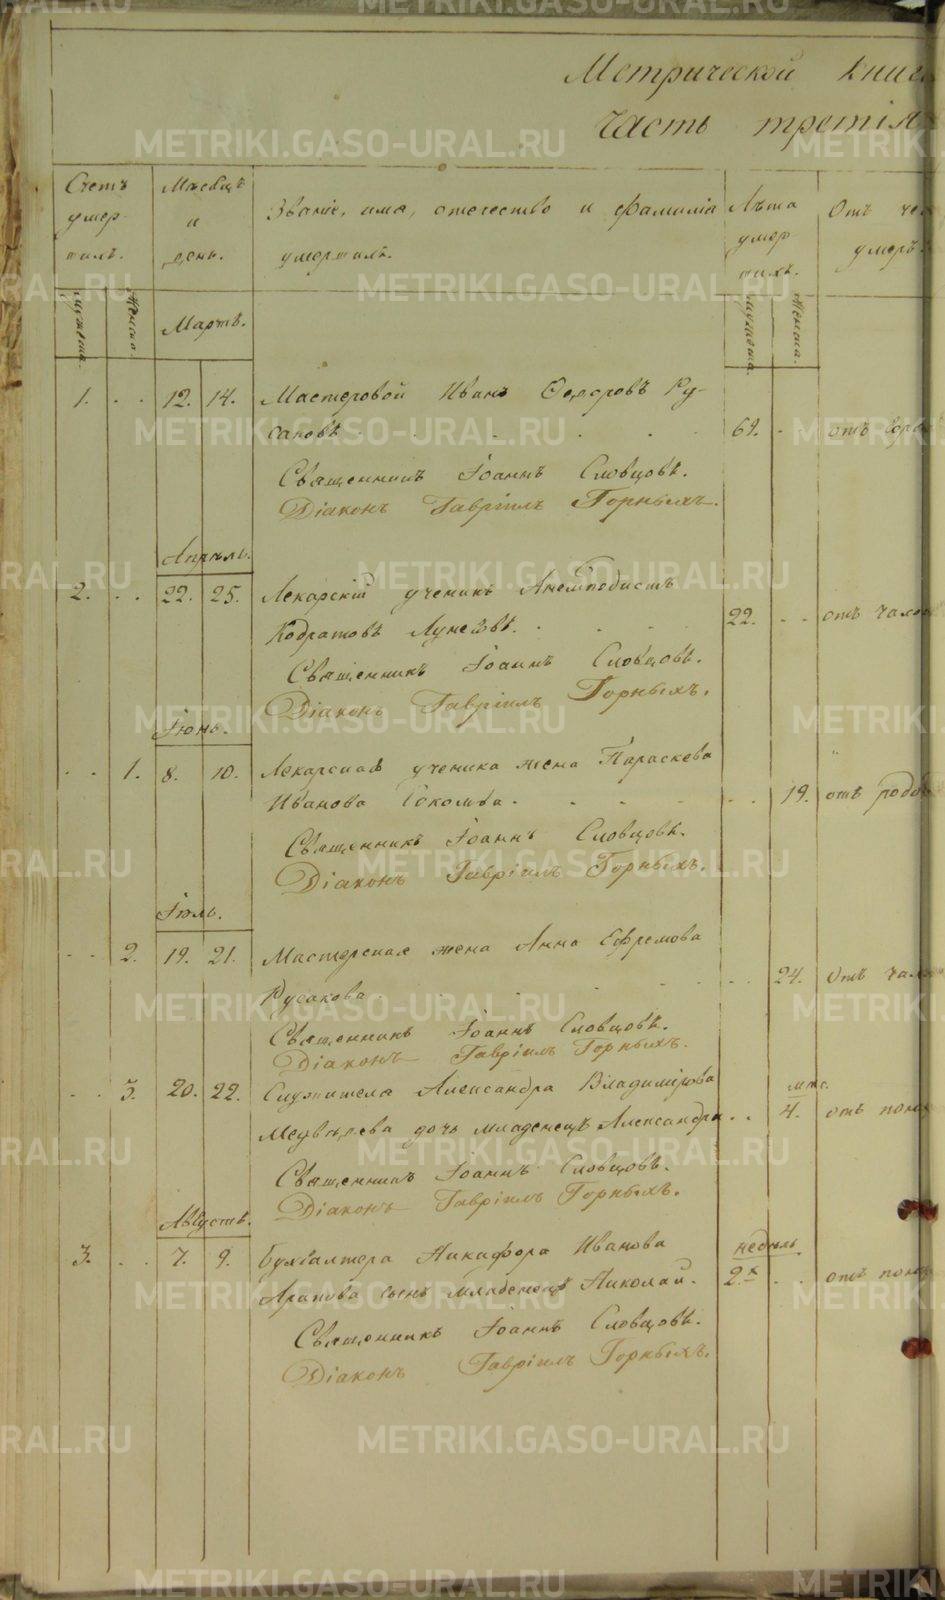 Метрической книги
Часть третія
Счетъ умер- шихъ.
Мѣсяцъ и день.
Званіе, имя, отечество и фамилія умершихъ.
Лѣта умер шихъ.
Отъ че
умеръ
Мужеска.
Женска.
Мартъ.
Мужеска.
Женска.
1. . . 12. 14. Мастеровой Иванъ Ѳедоровъ Ру-
саковъ 69. отъ горя
Священникъ Іоаннъ Словцовъ.
Діаконъ Гавріилъ Горныхъ.
Апрѣль.
2. . . 22. 25. Лекарскій ученикъ Анемподистъ
Кодратовъ 22. отъ чахо
Священникъ Іоаннъ Словцовъ.
Діаконъ Гавріилъ Горныхъ.
Іюнь.
. . 1. 8. 10. Лекарскаго ученика жена Параскева
Иванова 19. отъ родо
Священникъ Іоаннъ Словцовъ.
Діаконъ Гавріилъ Горныхъ.
Іюль.
. . 2. 19. 21. Мастерская жена Анна Ефремова
Русакова 24. Отъ чах
Священникъ Іоаннъ Словцовъ.
Діаконъ Гавріилъ Горныхъ.
. . 3. 20. 22. Служителя Александра Владимірова мѣс.
Медвѣдева дочь младенецъ Александра . . 4. отъ поно
Священникъ Іоаннъ Словцовъ.
Діаконъ Гавріилъ Горныхъ.
Августъ.
3. . . 7. 9. Бухгалтера Никифора Иванова недѣль
Арапова сынъ младенецъ Николай. 2.х . . отъ поно
Священникъ Іоаннъ Словцовъ.
Діаконъ Гавріилъ Горныхъ.
METRIKI.GASO-URAL.RU